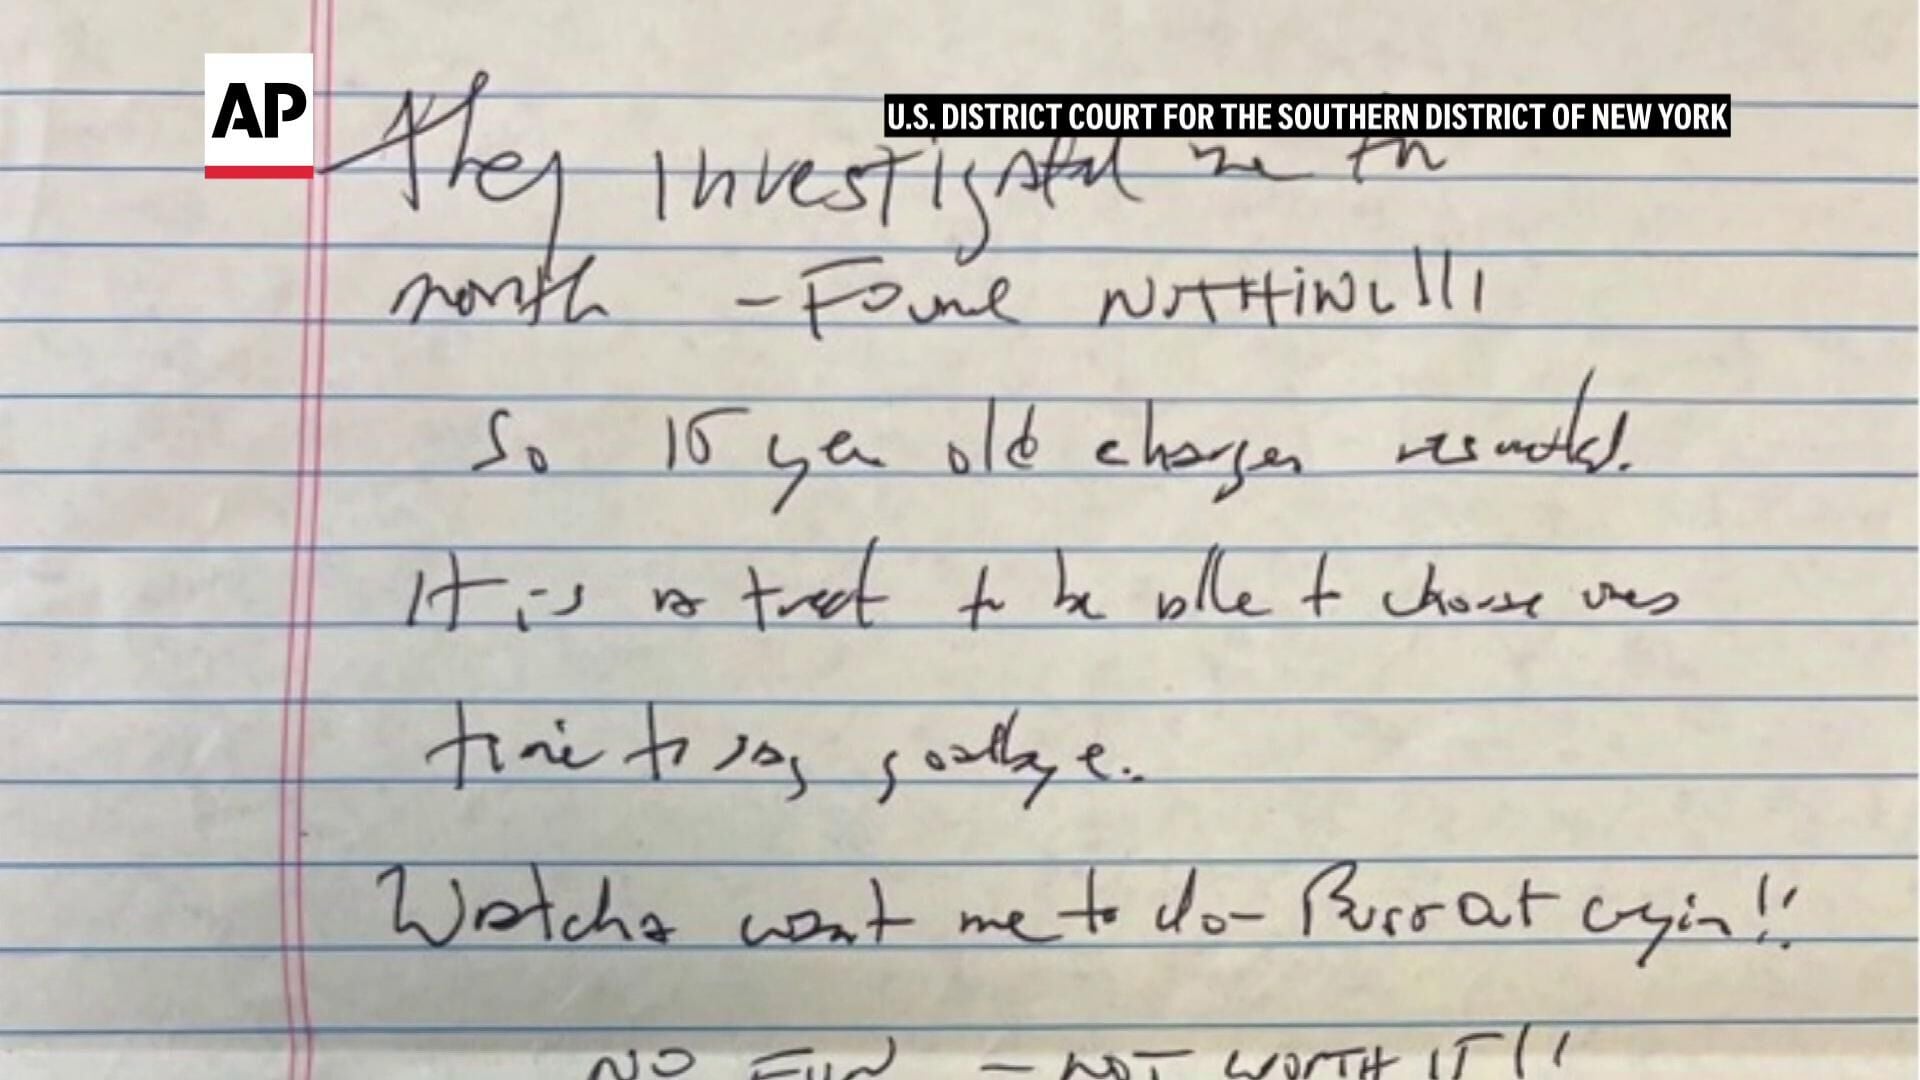 AP
U.S. DISTRICT COURT FOR THE SOUTHERN DISTRICT OF NEW YORK
They investigated me for
month - Found NOTHING!!!
So 15 year old charges
It is a treat to be able to choose ones
time to say goodbye.
Watcha want me to do - Burst out cryin!!
NO FUN - NOT WORTH IT!!